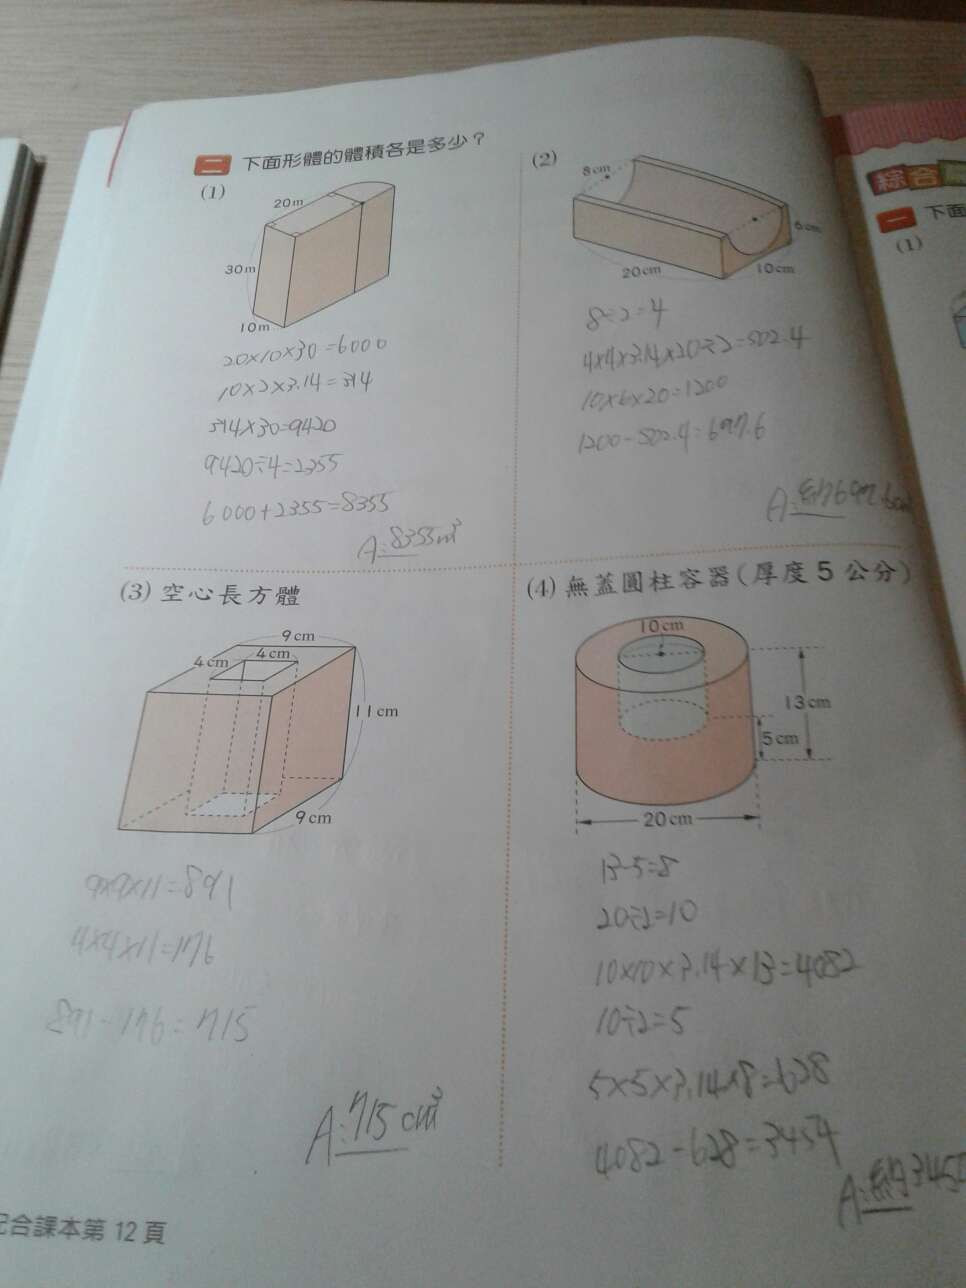 二 下面形體的體積各是多少？
(1)
20m
30m
10m
20×10×30=6000
10×2×3.14=314
314×30=9420
9420÷4=2355
6000+2355=8355
A:8355m³
(2)
8cm
6cm
20cm
10cm
8÷2=4
4×4×3.14×20÷2=502.4
10×6×20=1200
1200-502.4=697.6
A:約697.6cm³
(3) 空心長方體
9cm
4cm
4cm
11cm
9cm
9×9×11=891
4×4×11=176
891-176=715
A:715cm³
(4) 無蓋圓柱容器(厚度5公分)
10cm
13cm
5cm
20cm
13-5=8
20÷2=10
10×10×3.14×13=4082
10÷2=5
5×5×3.14×8=628
4082-628=3454
A:約345
配合課本第12頁
綜合
一 下面
(1)